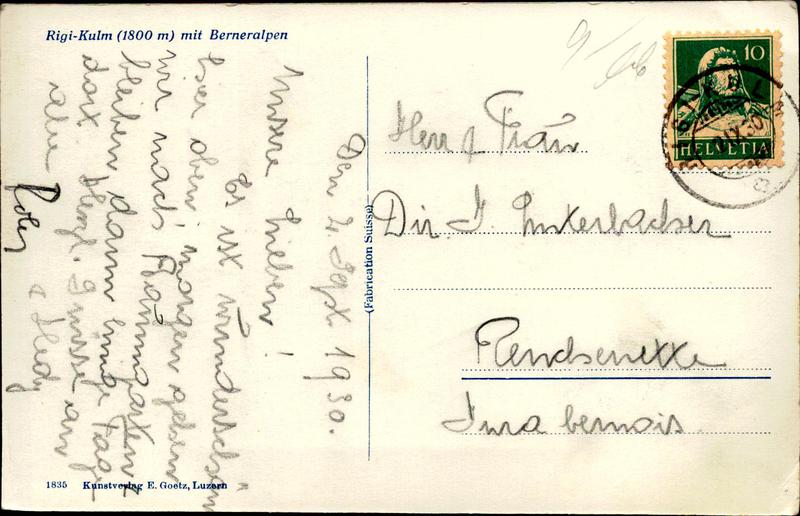 Rigi-Kulm (1800 m) mit Berneralpen
Den 2. Sept. 1930.
Unsere Lieben!
Es ist wunderschön
hier oben, morgen gehen
wir nach
bleiben dann einige Tage
dort. Herzl. Grüsse an
alle
Hedy
HELVETIA
10
Herr & Frau
Dir. J.
Reuchenette
Jura bernois.
(Fabrication Suisse)
1835 Kunstverlag E. Goetz, Luzern